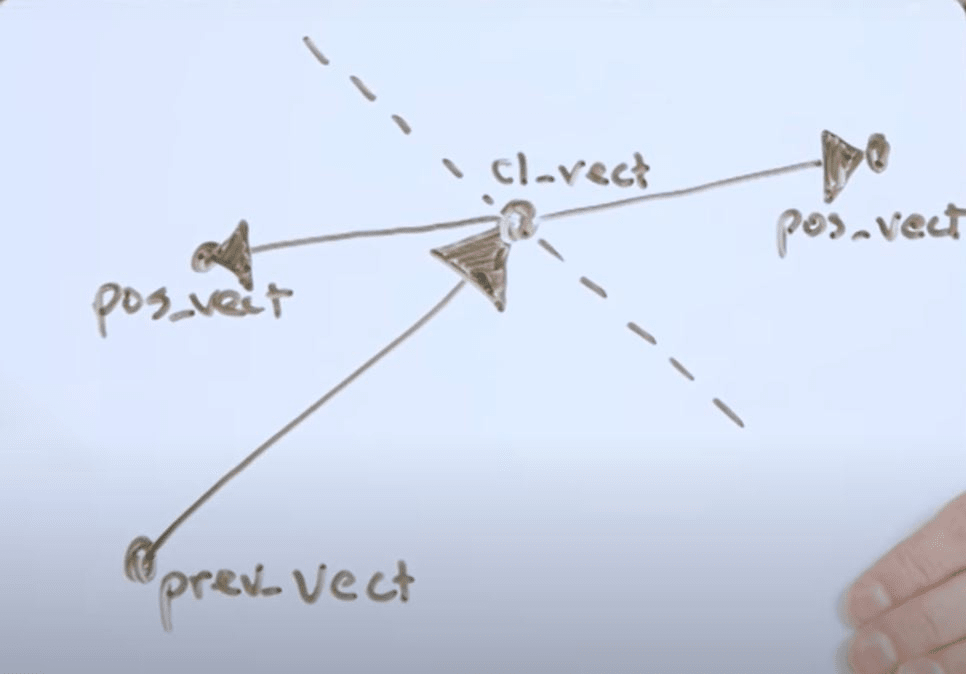 cl_vect
pos_vect
pos_vect
prev_vect